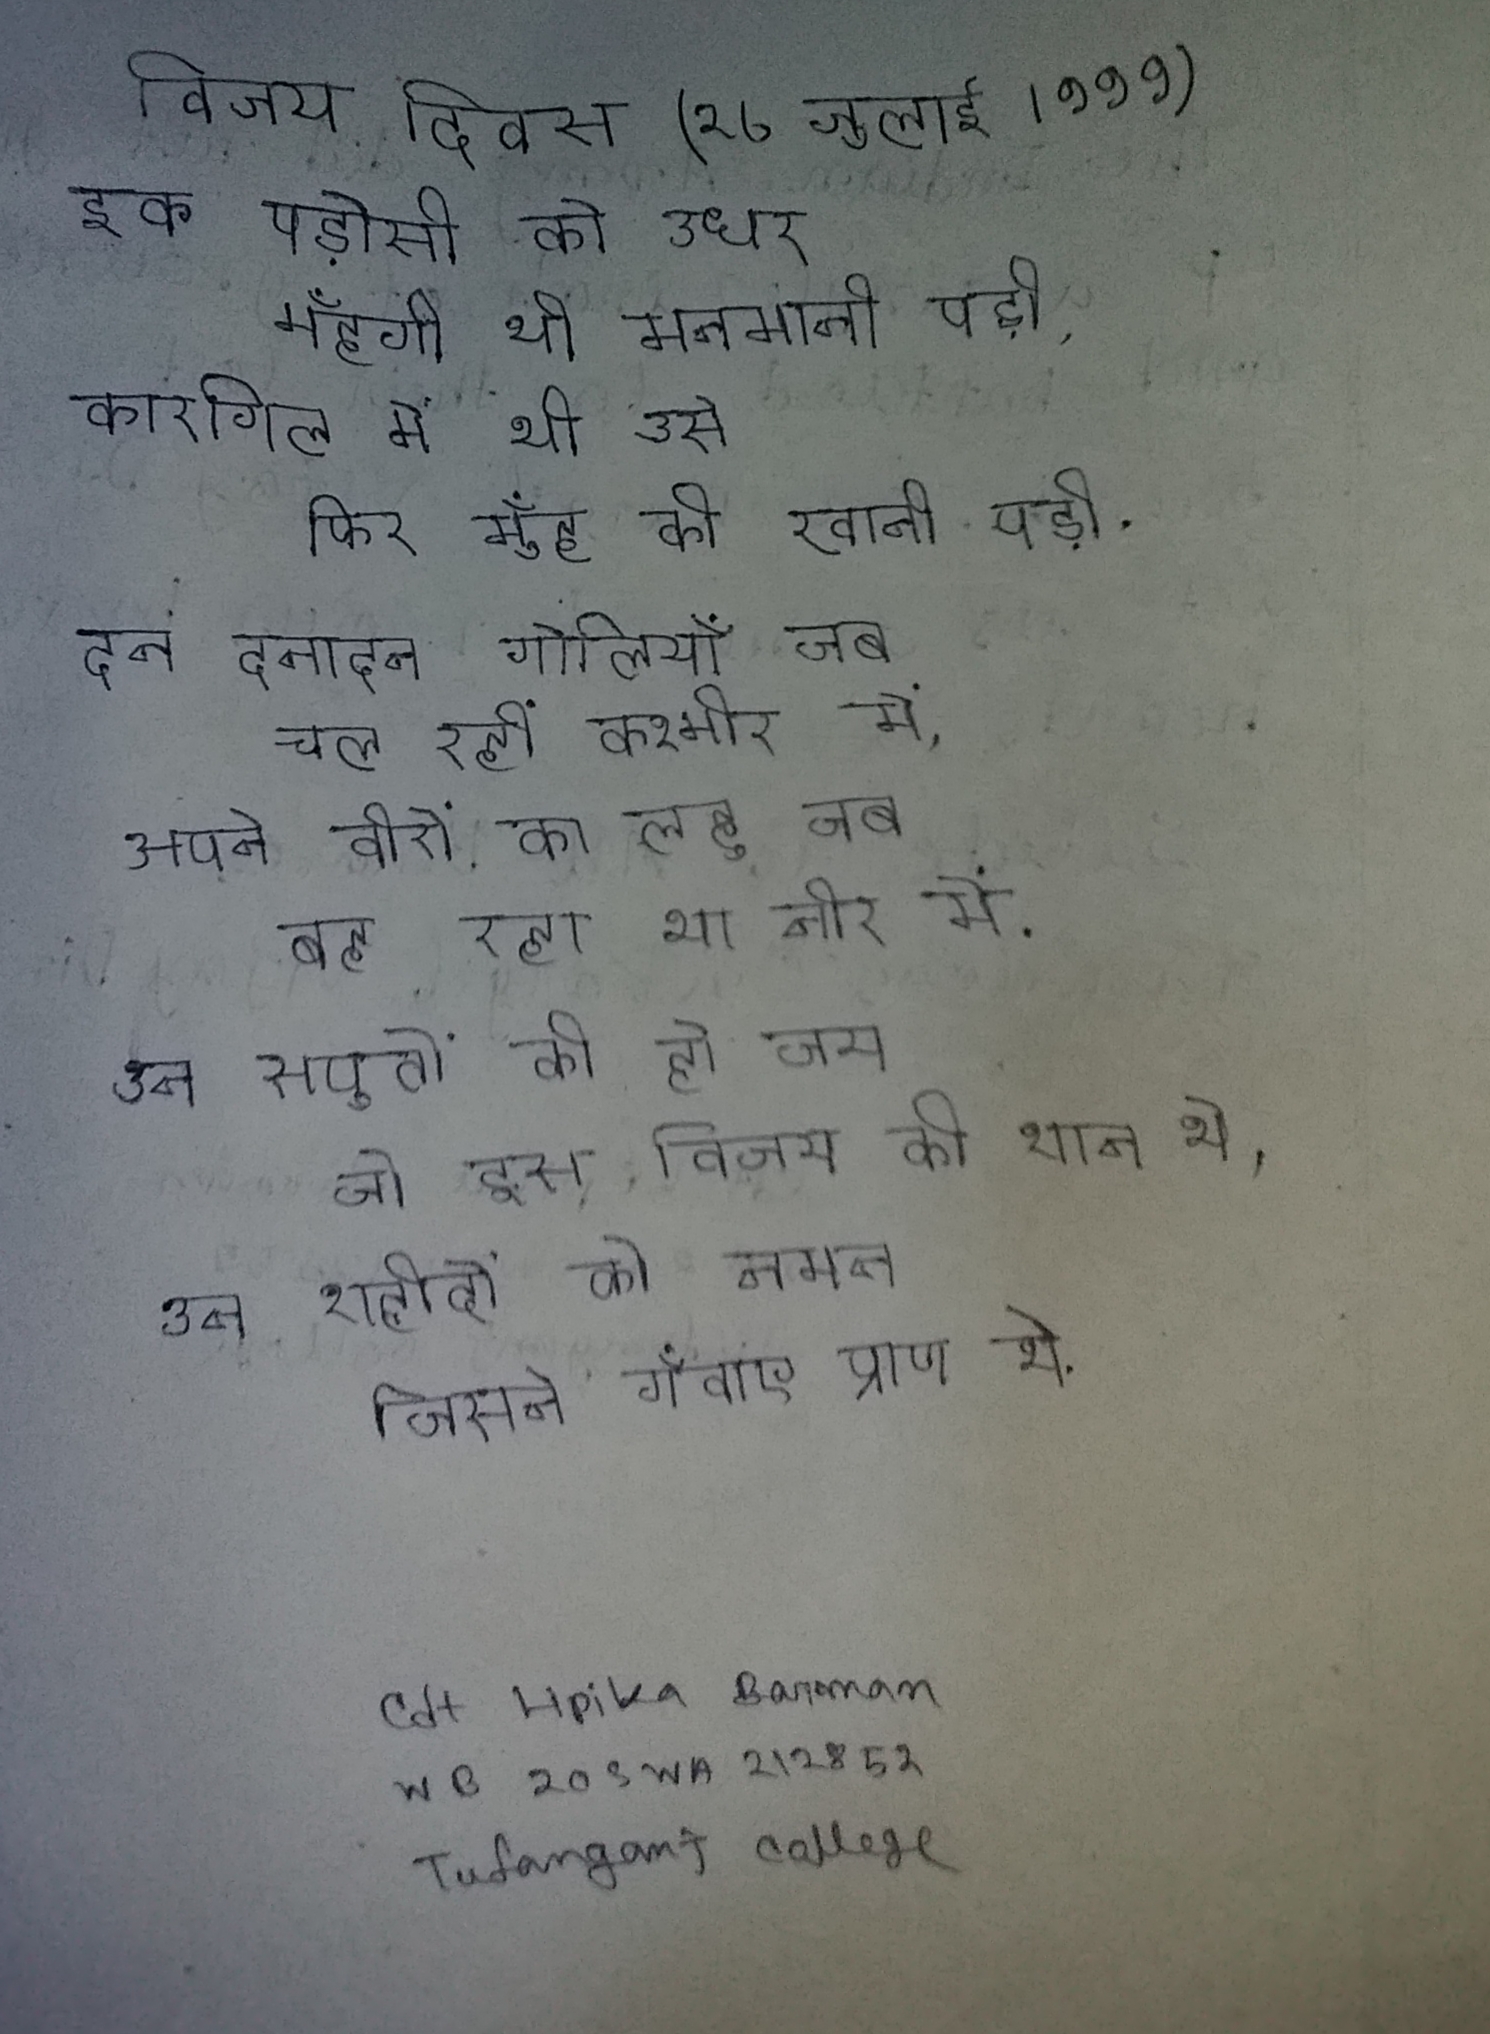 विजय दिवस (२६ जुलाई 1999)
इक पड़ोसी को उधर
मँहगी थी मनमानी पड़ी,
कारगिल में थी उसे
फिर मुँह की खानी पड़ी.
दन दनादन गोलियाँ जब
चल रहीं कश्मीर में,
अपने वीरों का लहु जब
बह रहा था नीर में.
उन सपुतों की हो जय
जो इस विजय की शान थे,
उन शहीदों को नमन
जिसने गँवाए प्राण थे.
Cdt Lipika Barman
WB 20SWA 212852
Tufanganj College